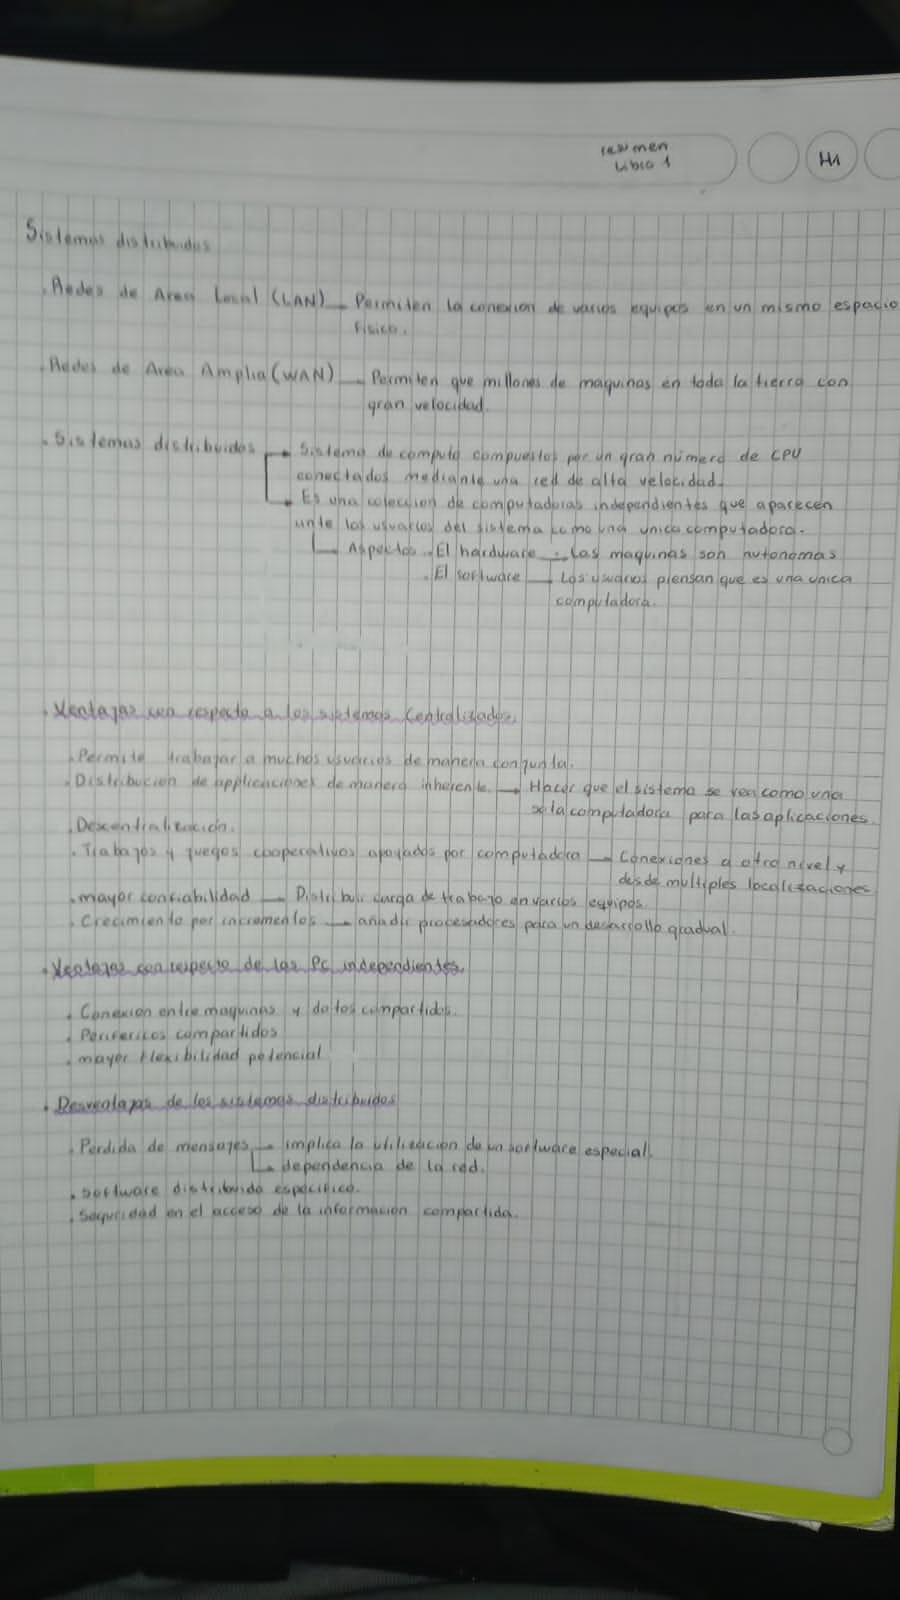 resumen
Libro 1
H1
Sistemas distribuidos
. Redes de Area Local (LAN) — Permiten la conexion de varios equipos en un mismo espacio
fisico.
. Redes de Area Amplia (WAN) — Permiten que millones de maquinas en toda la tierra con
gran velocidad.
. Sistemas distribuidos → Sistema de computo compuestos por un gran número de CPU
conectados mediante una red de alta velocidad.
→ Es una coleccion de computadoras independientes que aparecen
ante los usuarios del sistema como una unica computadora.
Aspectos . El hardware — Las maquinas son autonomas
. El software — Los usuarios piensan que es una unica
computadora.
. Ventajas con respecto a los sistemas Centralizados.
. Permite trabajar a muchos usuarios de manera conjunta.
. Distribucion de applicaciones de manera inherente. → Hacer que el sistema se vea como una
sola computadora para las aplicaciones.
. Descentralización.
. Trabajos y juegos cooperativos apoyados por computadora — Conexiones a otro nivel y
desde multiples localizaciones
. mayor confiabilidad — Distribuir carga de trabajo en varios equipos.
. Crecimiento por incrementos — añadir procesadores para un desarrollo gradual.
. Ventajas con respecto de las PC independientes.
. Conexion entre maquinas y datos compartidos.
. Perifericos compartidos
. mayor flexibilidad potencial
. Desventajas de los sistemas distribuidos
. Perdida de mensajes → implica la utilización de un software especial.
→ dependencia de la red.
. software distribuido especifico.
. Seguridad en el acceso de la información compartida.